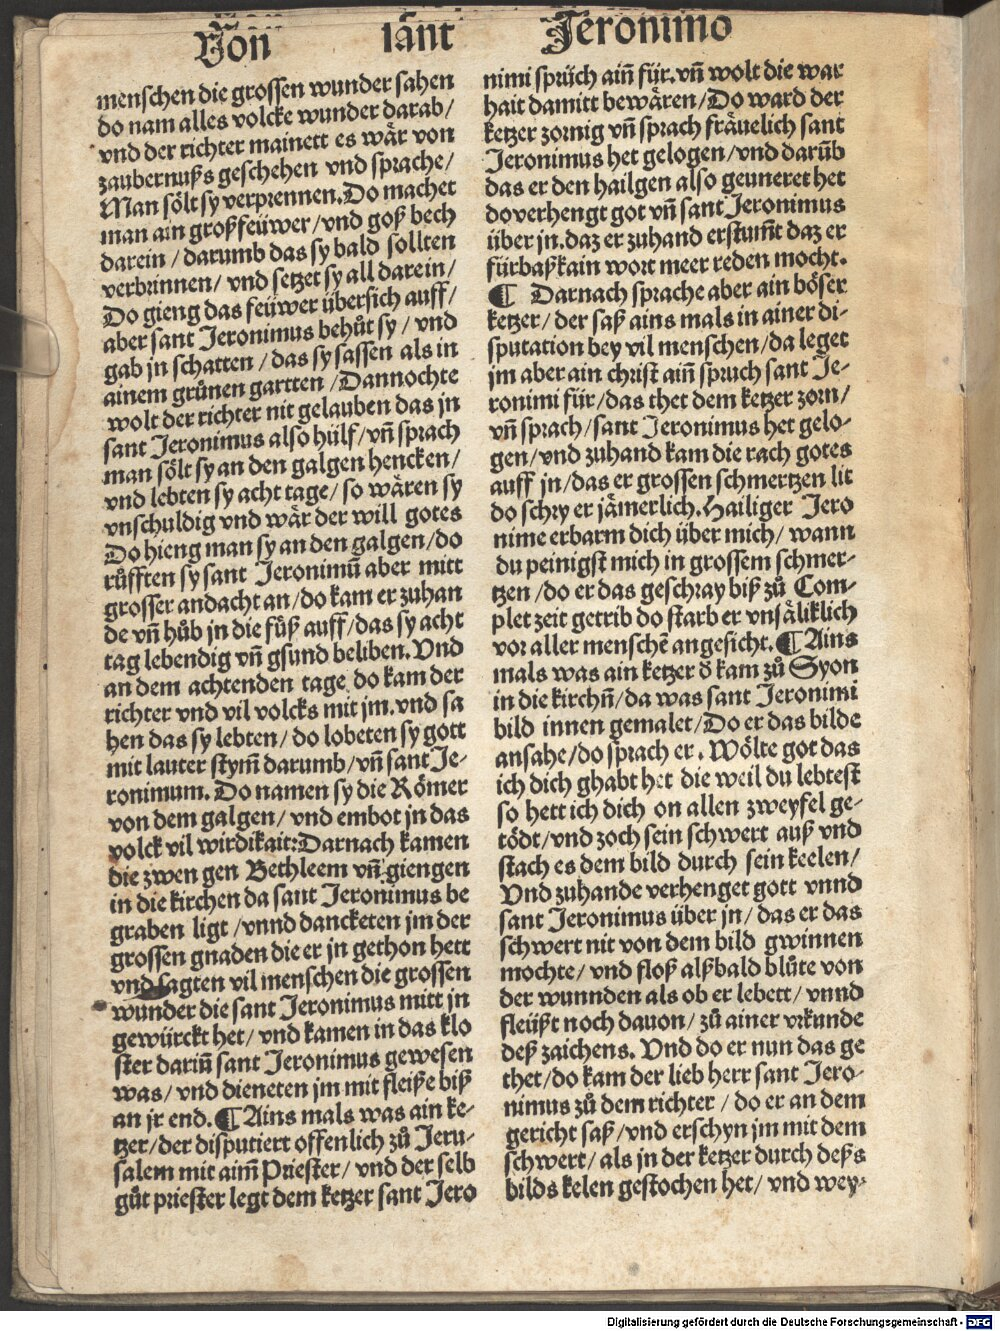 Von sant Jeronimo
menschen die grossen wunder sahen
do nam alles volcke wunder darab/
vnd der richter mainett es wår von
zaubernuß s geschehen vnd sprache/
Man sölt sy verprennen. Do machet
man ain groß feüwer/vnd goß bech
darein/darumb das sy bald sollten
verbrinnen/vnd setzet sy all darein/
Do gieng das feüwer übersich auff/
aber sant Jeronimus behůt sy/vnd
gab jn schatten/das sy sassen als in
ainem grůnen gartten/Dannochte
wolt der richter nit gelauben das jn
sant Jeronimus also hülf/vñ sprach
man sölt sy an den galgen hencken/
vnd lebten sy acht tage/so wären sy
vnschuldig vnd wår der will gotes
Do hieng man sy an den galgen/do
růfften sy sant Jeronimū aber mitt
grosser andacht an/do kam er zuhan
de vñ hůb jn die fůß auff/das sy acht
tag lebendig vñ gsund beliben. Vnd
an dem achtenden tage do kam der
richter vnd vil volcks mit jm. vnd sa
hen das sy lebten/do lobeten sy gott
mit lauter stym̄ darumb/vñ sant Je-
ronimum. Do namen sy die Römer
von dem galgen/vnd embot jn das
volck vil wirdikait: Darnach kamen
die zwen gen Bethleem vñ giengen
in die kirchen da sant Jeronimus be
graben ligt/vnnd dancketen jm der
grossen gnaden die er jn gethon hett
vnd sagten vil menschen die grossen
wunder die sant Jeronimus mitt jn
gewürckt het/vnd kamen in das klo
ster dariñ sant Jeronimus gewesen
was/vnd dieneten jm mit fleiße biß
an jr end. ¶ Ains mals was ain ke-
tzer/der disputiert offenlich zů Jeru-
salem mit aim̄ Priester/vnd der selb
gůt priester legt dem ketzer sant Jero
nimi sprüch aiñ für. vñ wolt die war
hait damitt bewären/Do ward der
ketzer zornig vñ sprach fräuelich sant
Jeronimus het gelogen/vnd darūb
das er den hailgen also geuneret het
do verhengt got vñ sant Jeronimus
über jn. daz er zuhand erstum̄t daz er
fürbaß kain wort meer reden mocht.
¶ Darnach sprache aber ain böser
ketzer/der saß ains mals in ainer di-
sputation bey vil menschen/da leget
jm aber ain christ aiñ spruch sant Je-
ronimi für/das thet dem ketzer zorn/
vñ sprach/sant Jeronimus het gelo-
gen/vnd zuhand kam die rach gotes
auff jn/das er grossen schmertzen lit
do schry er jämerlich. Hailiger Jero
nime erbarm dich über mich/wann
du peinigst mich in grossem schmer-
tzen/do er das geschray biß zů Com-
plet zeit getrib do starb er vnsäliklich
vor aller menschē angesicht. ¶ Ains
mals was ain ketzer d̄ kam zů Syon
in die kirchñ/da was sant Jeronimi
bild innen gemalet/Do er das bilde
ansahe/do sprach er. Wölte got das
ich dich ghabt het die weil du lebtest
so hett ich dich on allen zweyfel ge-
tödt/vnd zoch sein schwert auß vnd
stach es dem bild durch sein keelen/
Vnd zuhande verhenget gott vnnd
sant Jeronimus über jn/das er das
schwert nit von dem bild gwinnen
mochte/vnd floß alßbald blůte von
der wunnden als ob er lebett/vnnd
fleüßt noch dauon/zů ainer vrkunde
deß zaichens. Vnd do er nun das ge
thet/do kam der lieb herr sant Jero-
nimus zů dem richter/do er an dem
gericht saß/vnd erschyn jm mit dem
schwert/als jn der ketzer durch deß s
bilds kelen gestochen het/vnd wey-
Digitalisierung gefördert durch die Deutsche Forschungsgemeinschaft - DFG